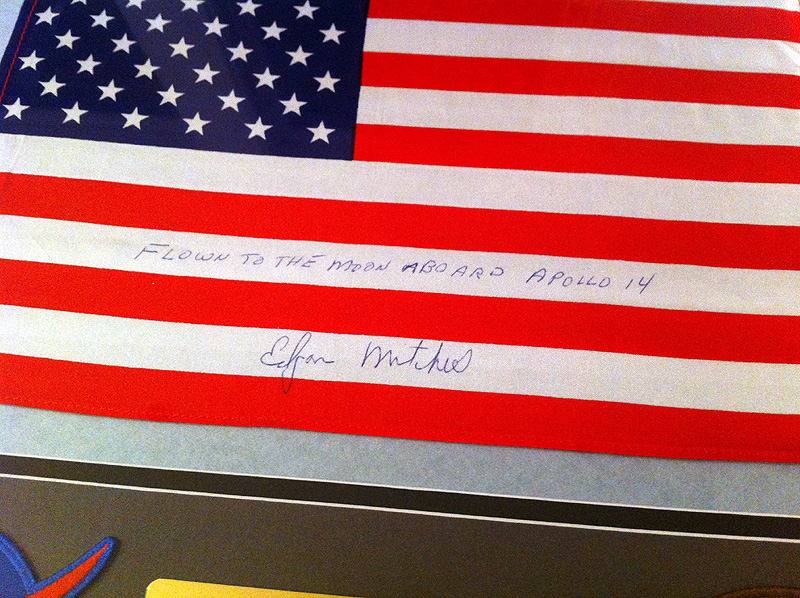 FLOWN TO THE MOON ABOARD APOLLO 14
Edgar Mitchell